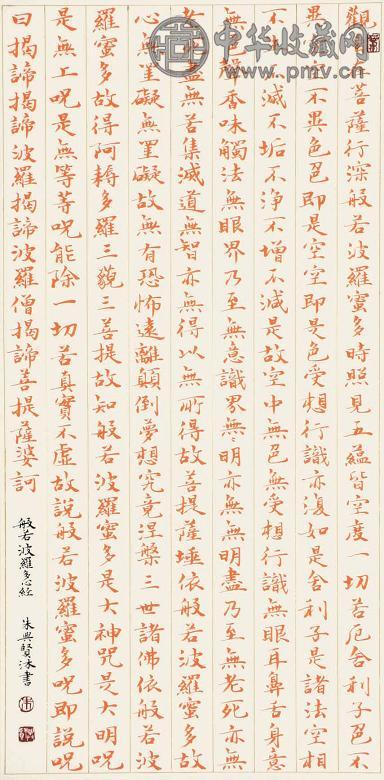 中华收藏网
www.pmv.cn
觀自在菩薩行深般若波羅蜜多時照見五蘊皆空度一切苦厄舍利子色不
異空空不異色色即是空空即是色受想行識亦復如是舍利子是諸法空相
不生不滅不垢不淨不增不減是故空中無色無受想行識無眼耳鼻舌身意
無色聲香味觸法無眼界乃至無意識界無〻明亦無無明盡乃至無老死亦無
老死盡無苦集滅道無智亦無得以無所得故菩提薩埵依般若波羅蜜多故
心無罣礙無罣礙故無有恐怖遠離顛倒夢想究竟涅槃三世諸佛依般若波
羅蜜多故得阿耨多羅三藐三菩提故知般若波羅蜜多是大神咒是大明呪
是無上呪是無等等呪能除一切苦真實不虛故說般若波羅蜜多呪即說呪
曰揭諦揭諦波羅揭諦波羅僧揭諦菩提薩婆訶
般若波羅多心經 朱興賢沐書